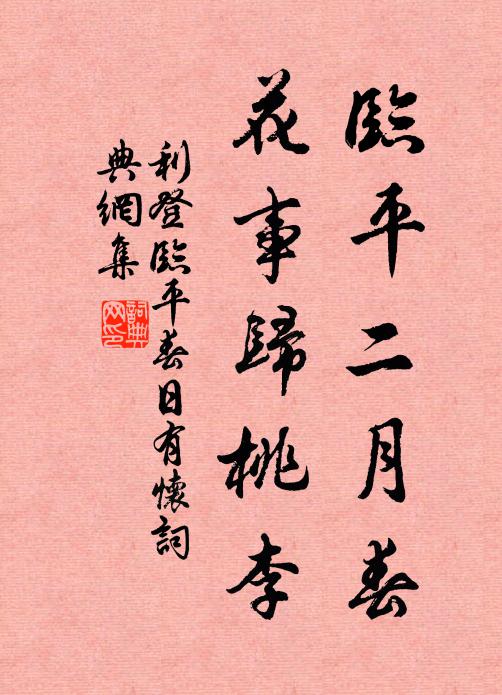 臨平二月春
花事歸桃李
利登臨平春日有懷詞
典網集
詞典
网印